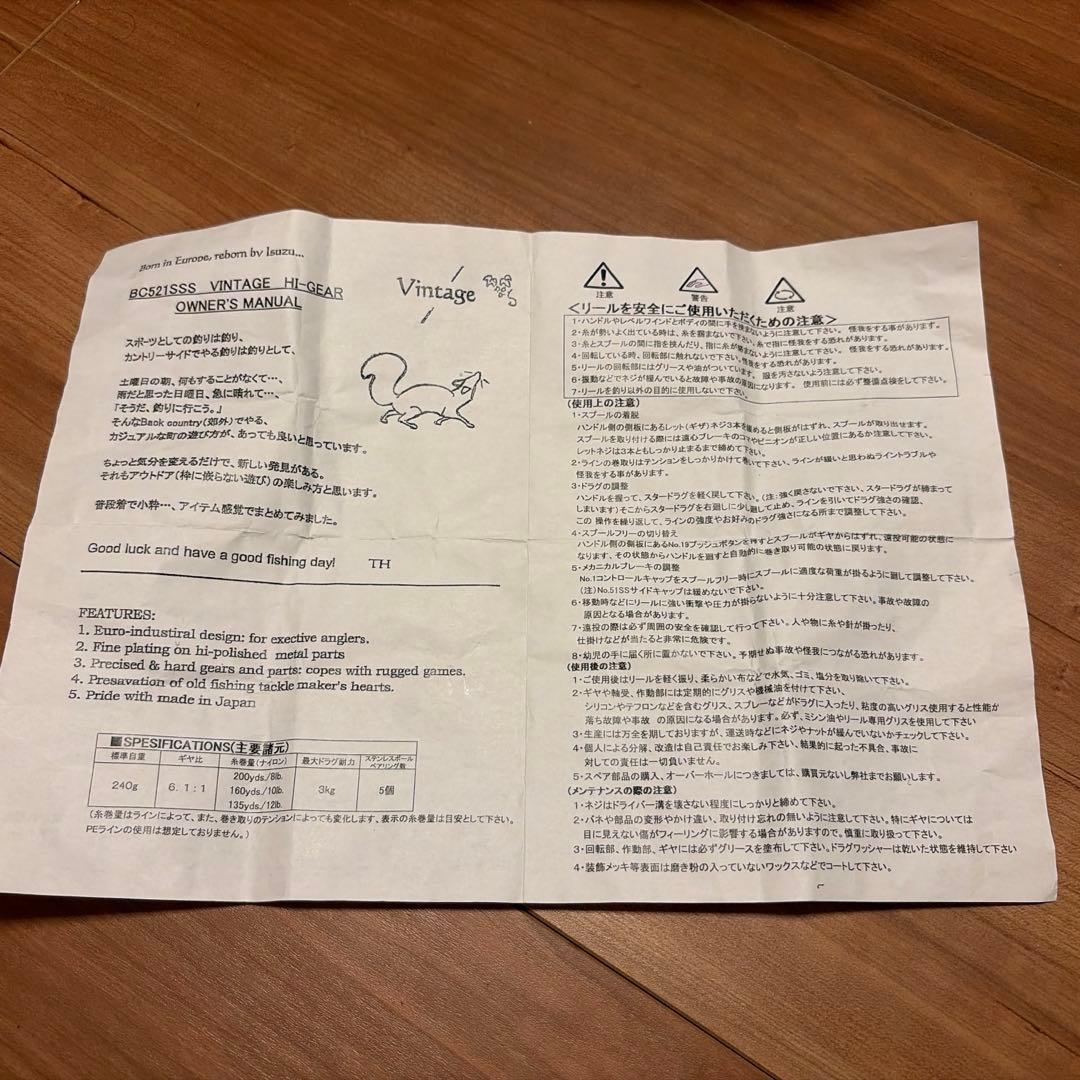 Born in Europe, reborn by Isuzu...
BC521SSS VINTAGE HI-GEAR
OWNER'S MANUAL
Vintage
スポーツとしての釣りは釣り、
カントリーサイドでやる釣りは釣りとして、
土曜日の朝、何もすることがなくて…、
雨だと思った日曜日、急に晴れて…、
「そうだ、釣りに行こう。」
そんなBack country(郊外)でやる、
カジュアルな町の遊び方が、あっても良いと思っています。
ちょっと気分を変えるだけで、新しい発見がある。
それもアウトドア(枠に嵌らない遊び)の楽しみ方と思います。
普段着で小粋…、アイテム感覚でまとめてみました。
Good luck and have a good fishing day! TH
FEATURES:
1. Euro-industiral design: for exective anglers.
2. Fine plating on hi-polished metal parts
3. Precised & hard gears and parts: copes with rugged games.
4. Presavation of old fishing tackle maker's hearts.
5. Pride with made in Japan
■SPESIFICATIONS(主要諸元)
標準自重 ギヤ比 糸巻量(ナイロン) 最大ドラグ耐力 ステンレスボールベアリング数
240g 6.1:1 200yds./8lb. 3kg 5個
160yds./10lb.
135yds./12lb.
(糸巻量はラインによって、また、巻き取りのテンションによっても変化します、表示の糸巻量は目安として下さい。
PEラインの使用は想定しておりません。)
注意 警告 注意
<リールを安全にご使用いただくための注意>
1・ハンドルやレベルワインドとボディの間に手を挟まないように注意して下さい。 怪我をする事があります。
2・糸が勢いよく出ている時は、糸を掴まないで下さい。糸で指に怪我をする恐れがあります。
3・糸とスプールの間に指を挟んだり、指に糸が絡まないように注意して下さい。 怪我をする恐れがあります。
4・回転している時、回転部に触れないで下さい。怪我をする恐れがあります。
5・リールの回転部にはグリースや油がついています。 服を汚さないよう注意して下さい。
6・振動などでネジが緩んでいると故障や事故の原因になります。 使用前には必ず整備点検をして下さい。
7・リールを釣り以外の目的に使用しないで下さい。
(使用上の注意)
1・スプールの着脱
ハンドル側の側板にあるレット(ギザ)ネジ3本を緩めると側板がはずれ、スプールが取り出せます。
スプールを取り付ける際には遠心ブレーキのコマやピニオンが正しい位置にあるか注意して下さい。
レットネジは3本ともしっかり止まるまで締めて下さい。
2・ラインの巻取りはテンションをしっかりかけて巻いて下さい、ラインが緩いと思わぬライントラブルや
怪我をする事があります。
3・ドラグの調整
ハンドルを握って、スタードラグを軽く戻して下さい。(注:強く戻さないで下さい、スタードラグが締まって
しまいます)そこからスタードラグを右廻しに少し廻して止め、ラインを引いてドラグ強さの確認、
この 操作を繰り返して、ラインの強度やお好みのドラグ強さになる所まで調整して下さい。
4・スプールフリーの切り替え
ハンドル側の側板にあるNo.19プッシュボタンを押すとスプールがギヤからはずれ、遠投可能の状態に
なります、その状態からハンドルを廻すと自動的に巻き取り可能の状態に戻ります。
5・メカニカルブレーキの調整
No.1コントロールキャップをスプールフリー時にスプールに適度な荷重が掛るように廻して調整して下さい。
(注)No.51SSサイドキャップは緩めないで下さい。
6・移動時などにリールに強い衝撃や圧力が掛らないように十分注意して下さい。事故や故障の
原因となる場合があります。
7・遠投の際は必ず周囲の安全を確認して行って下さい。人や物に糸や針が掛ったり、
仕掛けなどが当たると非常に危険です。
8・幼児の手に届く所に置かないで下さい。予期せぬ事故や怪我につながる恐れがあります。
(使用後の注意)
1・ご使用後はリールを軽く振り、柔らかい布などで水気、ゴミ、塩分を取り除いて下さい。
2・ギヤや軸受、作動部には定期的にグリスや機械油を付けて下さい、
シリコンやテフロンなどを含むグリス、スプレーなどがドラグに入ったり、粘度の高いグリス使用すると性能が
落ち故障や事故 の原因になる場合があります。必ず、ミシン油やリール専用グリスを使用して下さい
3・生産には万全を期しておりますが、運送時などにネジやナットが緩んでいないかチェックして下さい。
4・個人による分解、改造は自己責任でお楽しみ下さい、結果的に起った不具合、事故に
対しての責任は一切負いません。
5・スペア部品の購入、オーバーホールにつきましては、購買元ないし弊社までお願いします。
(メンテナンスの際の注意)
1・ネジはドライバー溝を壊さない程度にしっかりと締めて下さい。
2・バネや部品の変形やかけ違い、取り付け忘れの無いように注意して下さい。特にギヤについては
目に見えない傷がフィーリングに影響する場合がありますので。慎重に取り扱って下さい。
3・回転部、作動部、ギヤには必ずグリースを塗布して下さい。ドラグワッシャーは乾いた状態を維持して下さい
4・装飾メッキ等表面は磨き粉の入っていないワックスなどでコートして下さい。